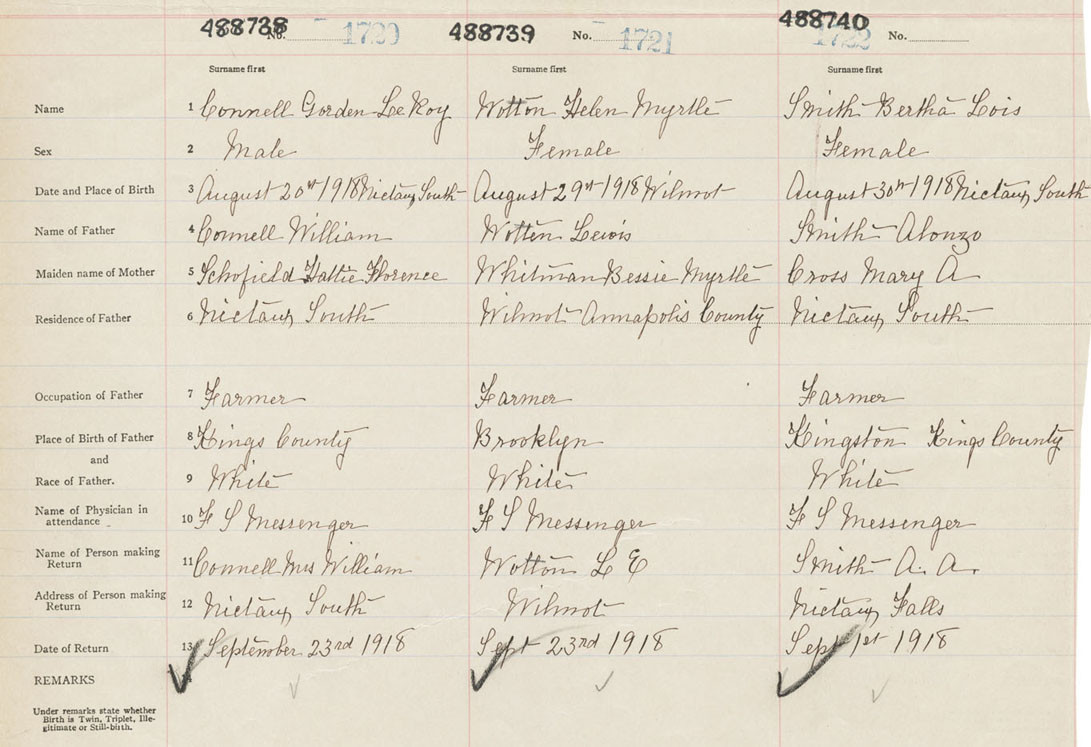 488738 No. 1720 488739 No. 1721 488740 1722 No.
Surname first Surname first Surname first
Name 1 Connell Gorden LeRoy Wotton Helen Myrtle Smith Bertha Lois
Sex 2 Male Female Female
Date and Place of Birth 3 August 20th 1918 Nictaux South August 29th 1918 Wilmot August 30th 1918 Nictaux South
Name of Father 4 Connell William Wotton Lewis Smith Alonzo
Maiden name of Mother 5 Schofield Hattie Florence Whitman Bessie Myrtle Cross Mary A
Residence of Father 6 Nictaux South Wilmot Annapolis County Nictaux South
Occupation of Father 7 Farmer Farmer Farmer
Place of Birth of Father 8 Kings County Brooklyn Kingston Kings County
and
Race of Father. 9 White White White
Name of Physician in
attendance 10 F S Messenger F S Messenger F S Messenger
Name of Person making
Return 11 Connell Mrs William Wotton L E Smith A. A.
Address of Person making
Return 12 Nictaux South Wilmot Nictaux Falls
Date of Return 13 September 23rd 1918 Sept 23rd 1918 Sept 1st 1918
REMARKS
Under remarks state whether
Birth is Twin, Triplet, Ille-
gitimate or Still-birth.